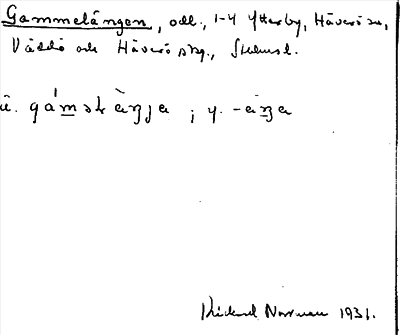 Gammelängen, odl., 1-4 Ytterby, Häverö sn,
Väddö och Häverö skg., Sthlmsl.
ä. gámǝlèŋja ; y. -èŋa
Rickard Norrman 1931.